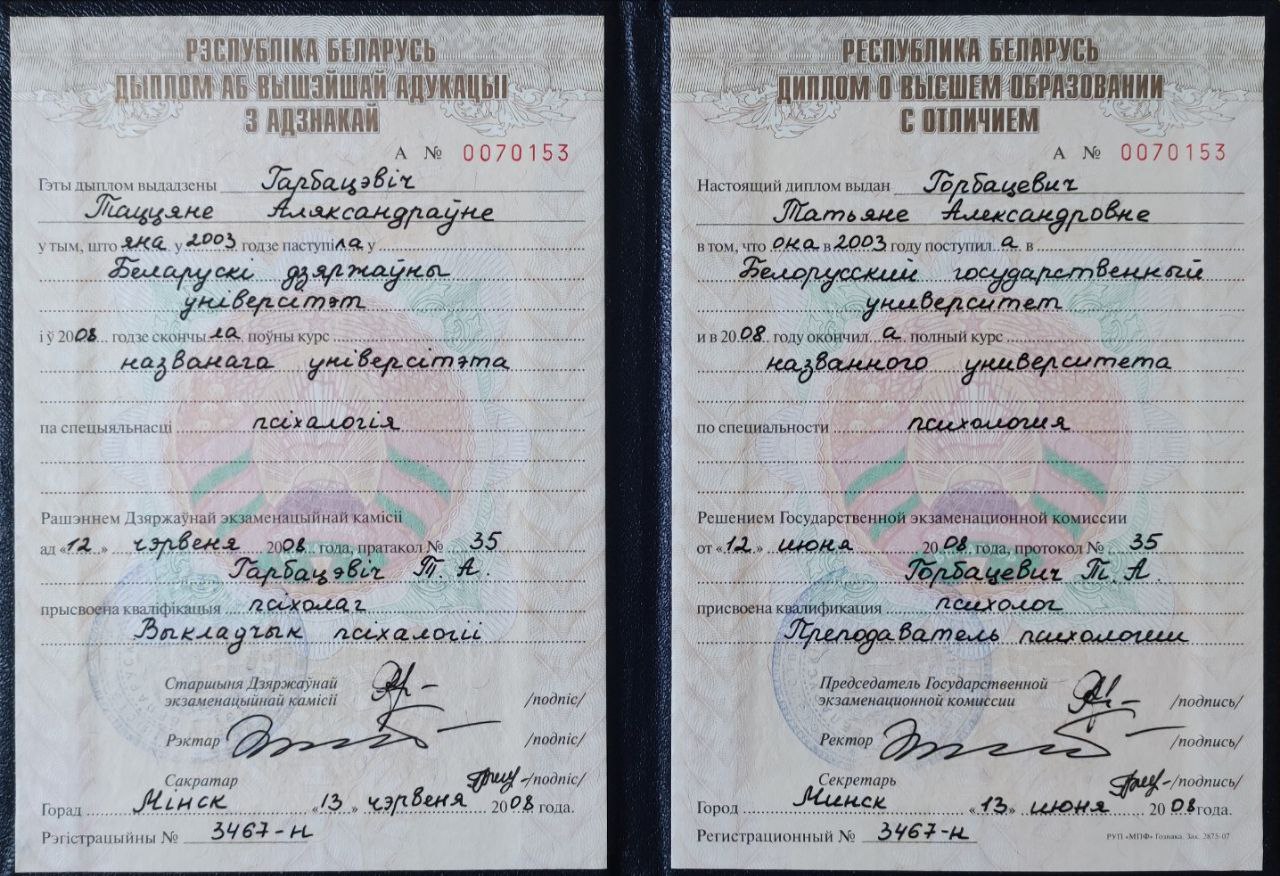 РЭСПУБЛІКА БЕЛАРУСЬ
ДЫПЛОМ АБ ВЫШЭЙШАЙ АДУКАЦЫІ
З АДЗНАКАЙ
А № 0070153
Гэты дыплом выдадзены Гарбацэвіч
Таццяне Аляксандраўне
у тым, што яна у 2003 годзе паступіла у
Беларускі дзяржаўны
універсітэт
і ў 2008 годзе скончыла поўны курс
названага універсітэта
па спецыяльнасці псіхалогія
Рашэннем Дзяржаўнай экзаменацыйнай камісіі
ад «12» чэрвеня 2008 года, пратакол № 35
Гарбацэвіч Т. А.
прысвоена кваліфікацыя псіхолаг
Выкладчык псіхалогіі
Старшыня Дзяржаўнай
экзаменацыйнай камісіі /подпіс/
Рэктар /подпіс/
Сакратар /подпіс/
Горад Мінск «13» чэрвеня 2008 года.
Рэгістрацыйны № 3467-н
РЕСПУБЛИКА БЕЛАРУСЬ
ДИПЛОМ О ВЫСШЕМ ОБРАЗОВАНИИ
С ОТЛИЧИЕМ
А № 0070153
Настоящий диплом выдан Горбацевич
Татьяне Александровне
в том, что она в 2003 году поступила в
Белорусский государственный
университет
и в 2008 году окончила полный курс
названного университета
по специальности психология
Решением Государственной экзаменационной комиссии
от «12» июня 2008 года, протокол № 35
Горбацевич Т. А.
присвоена квалификация психолог
Преподаватель психологии
Председатель Государственной
экзаменационной комиссии /подпись/
Ректор /подпись/
Секретарь /подпись/
Город Минск «13» июня 2008 года.
Регистрационный № 3467-н
РУП «МПФ» Гознака. Зак. 2875-07